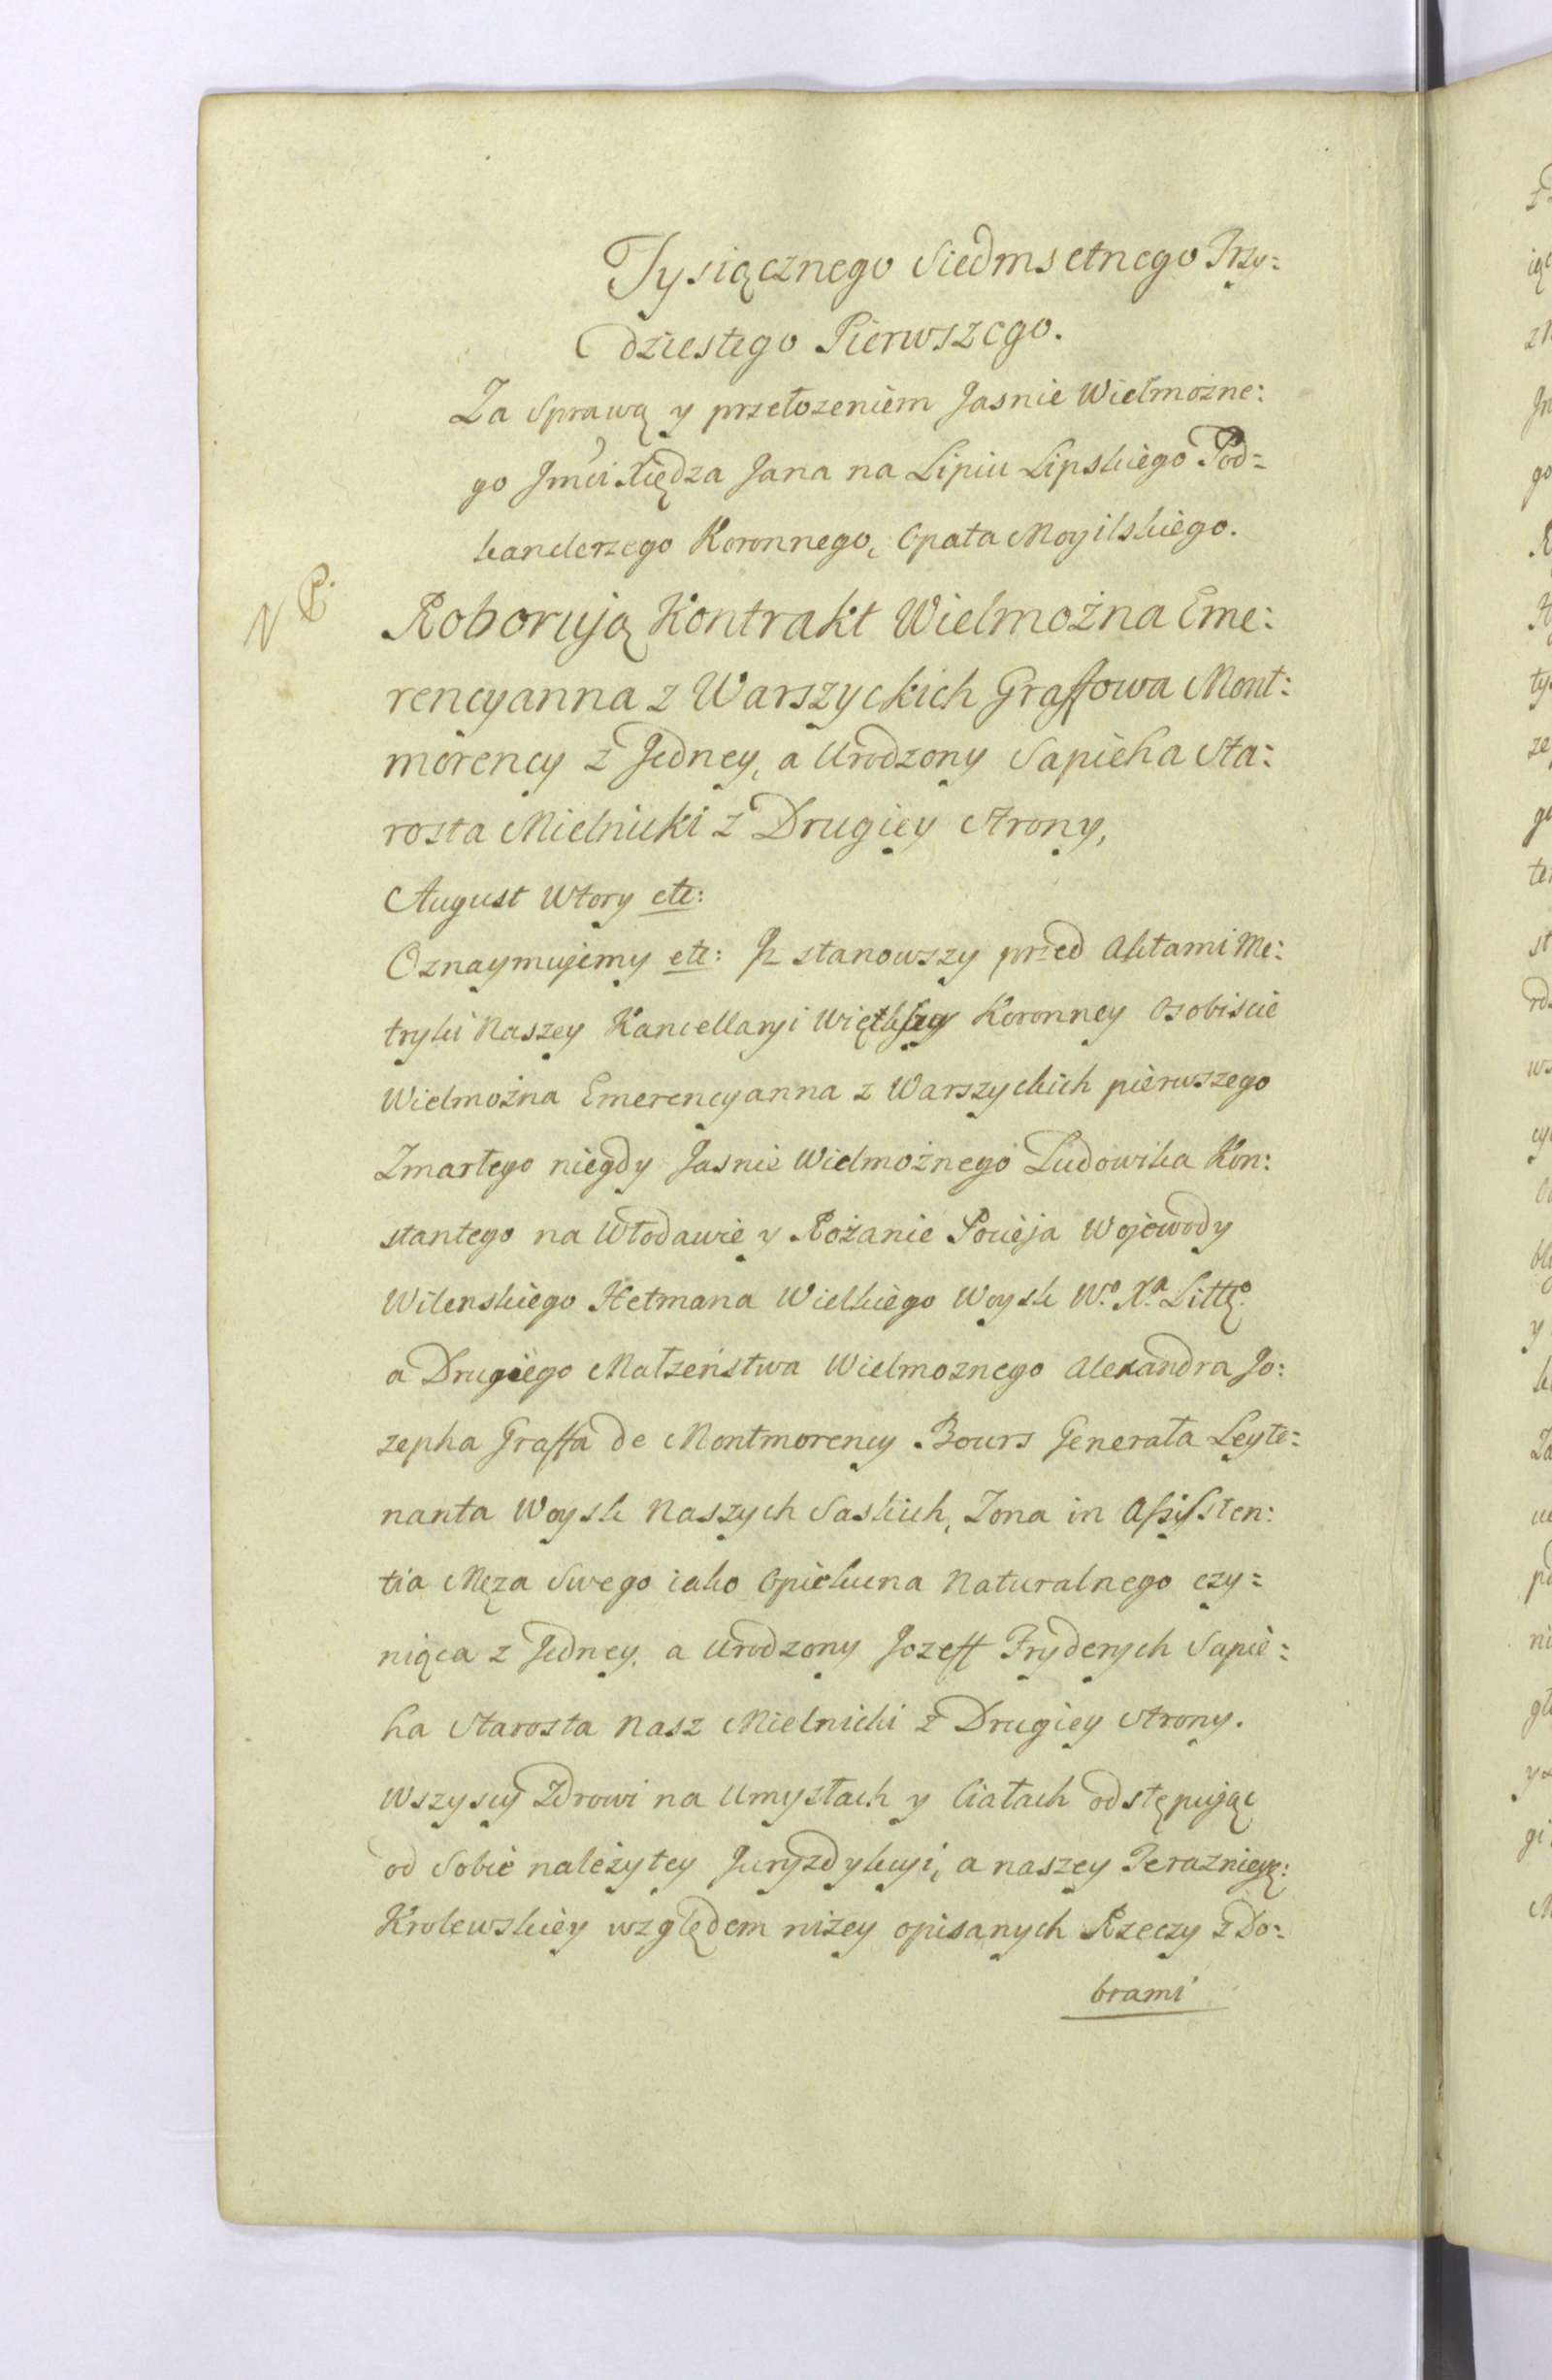 Tysiącznego Siedmsetnego Trzy=
dziestego Pierwszego.
Za Sprawą y przełozeniem Jasnie Wielmożne:
go Jmci Xiędza Jana na Lipiu Lipskiego Pod=
kanclerzego Koronnego, Opata Mogilskiego.
NB.
Roborują Kontrakt Wielmożna Eme:
rencyanna z Warszyckich Graffowa Mont:
morency z Jedney, a Urodzony Sapieha Sta:
rosta Mielnicki z Drugiey Strony,
August Wtory etc:
Oznaymujemy etc: Jz stanowszy przed Aktami Me:
tryki Naszey Kancellaryi Więtkszey Koronney Osobiscie
Wielmożna Emerencyanna z Warszyckich pierwszego
Zmarłego niegdy Jasnie Wielmożnego Ludowika Kon:
stantego na Włodawie y Rożanie Pocieja Wojewody
Wilenskiego Hetmana Wielkiego Woysk W.º X.ª Littº
a Drugiego Małzeństwa Wielmoznego Alexandra Jo:
zepha Graffa de Montmorency Bours Generała Leyte=
nanta Woysk Naszych Saskich, Zona in Assisten:
tia Męza Swego iako Opiekuna Naturalnego czy=
niąca z Jedney, a Urodzony Jozeff Fryderych Sapie=
ha Starosta Nasz Mielnicki z Drugiey Strony.
Wszyscy Zdrowi na Umysłach y Ciałach odstępując
od Sobie należytey Juryzdykcyi, a naszey
Krolewskiey względem niżey opisanych Rzeczy z Do=
brami